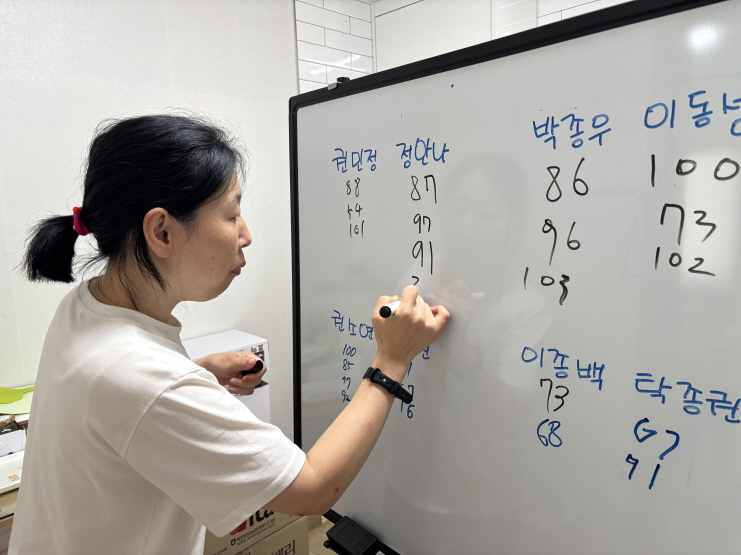 권민정
88
84
101
정안나
87
97
91
박종우
86
96
103
이동성
100
73
102
권소연
100
85
97
92
16
이종백
73
68
탁종권
67
71